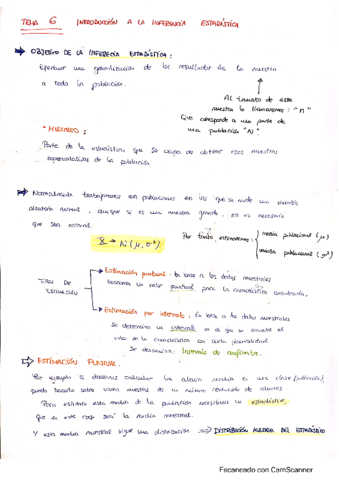 TEMA 6 INTRODUCCIÓN A LA INFERENCIA ESTADÍSTICA
OBJETIVO DE LA INFERENCIA ESTADÍSTICA:
Efectuar una generalización de los resultados de la muestra
a toda la población.
Al tamaño de esta
muestra lo llamaremos: "n"
Que corresponde a una parte de
una población "N"
"MUESTREO":
Parte de la estadística que se ocupa de obtener esas muestras
representativas de la población
Normalmente trabajaremos con poblaciones en las que se mide una variable
aleatoria normal, aunque si es una muestra grande, no es necesario
que sea normal.
X → N(μ, σ²)
Por tanto, estimaremos:
media poblacional (μ)
varianza poblacional (σ²)
TIPOS DE ESTIMACIÓN
Estimación puntual: En base a los datos muestrales
buscamos un valor puntual para la característica
Estimación por intervalo: En base a los datos muestrales
se determina un intervalo en el que se encuentre el
valor de la característica con cierta probabilidad.
Se denomina: Intervalo de confianza.
ESTIMACIÓN PUNTUAL:
Por ejemplo si deseamos calcular la altura media de una clase (población),
puedo hacerlo sobre unas muestras de un número reducido de alumnos
Para estimar esta media de la población necesitamos un estadístico,
que en este caso será la media muestral.
Y esta media muestral sigue una distribución ⇒ DISTRIBUCIÓN MUESTRAL DEL ESTADÍSTICO
Escaneado con CamScanner